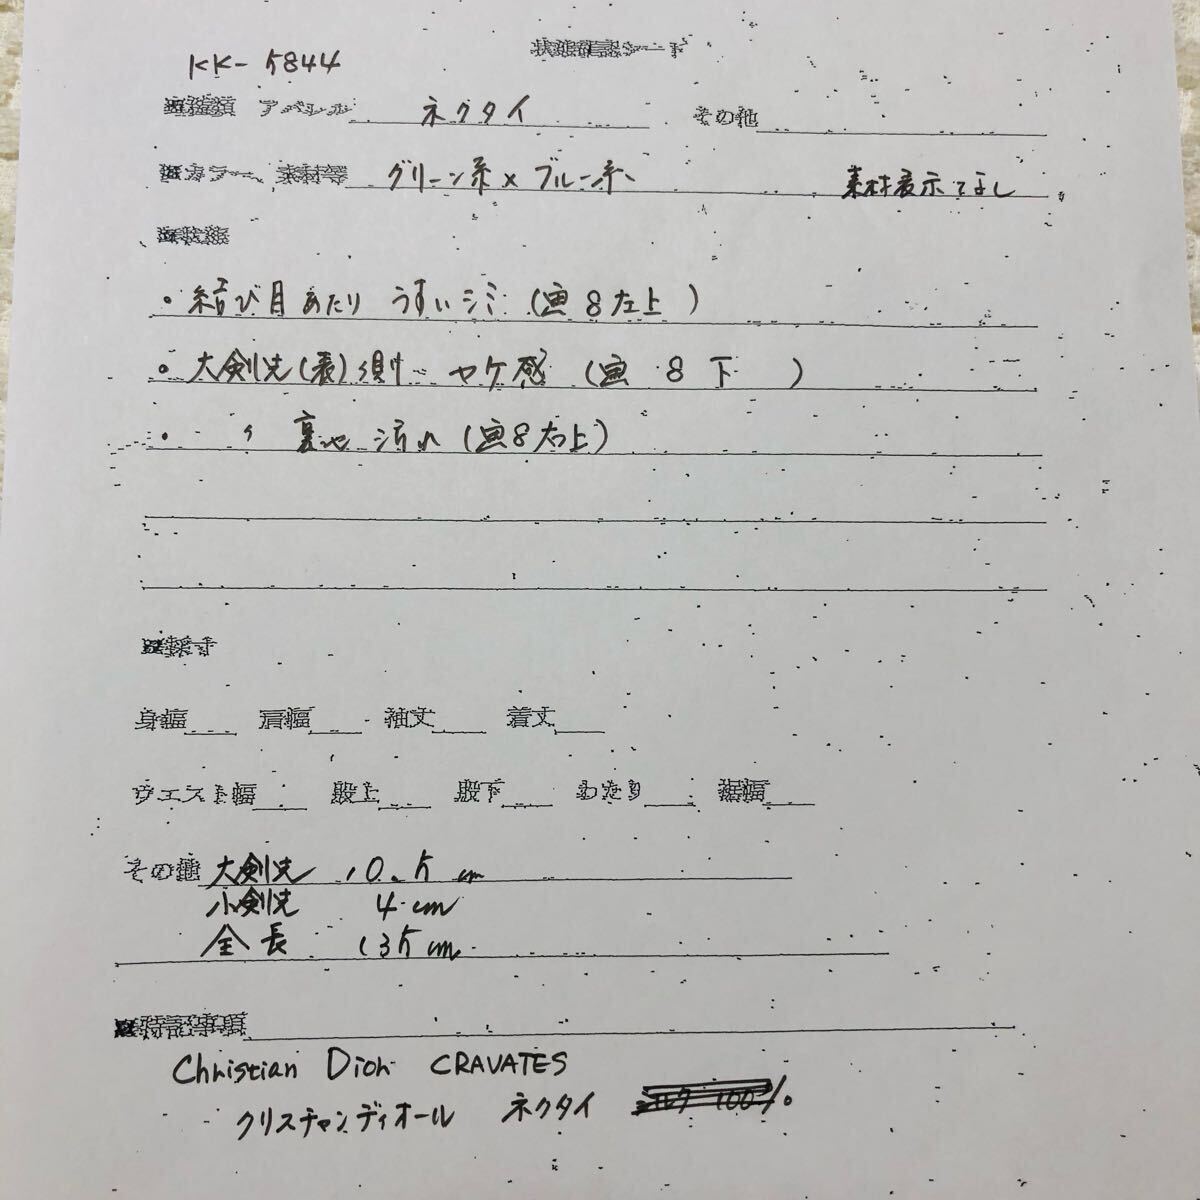 KK-5844
状態確認シート
■種類 アパレル ネクタイ その他
■カラー、素材等 グリーン系×ブルー系 素材表示なし
■状態
・結び目あたり うすいシミ(画8左上)
・大剣先(表)側 ヤケ感(画8下)
・〃 裏地 汚れ(画8右上)
■採寸
身幅 肩幅 袖丈 着丈
ウエスト幅 股上 股下 わたり 裾幅
その他 大剣先 10.5cm
小剣先 4cm
全長 135cm
■特記事項
Christian Dior CRAVATES
クリスチャンディオール ネクタイ